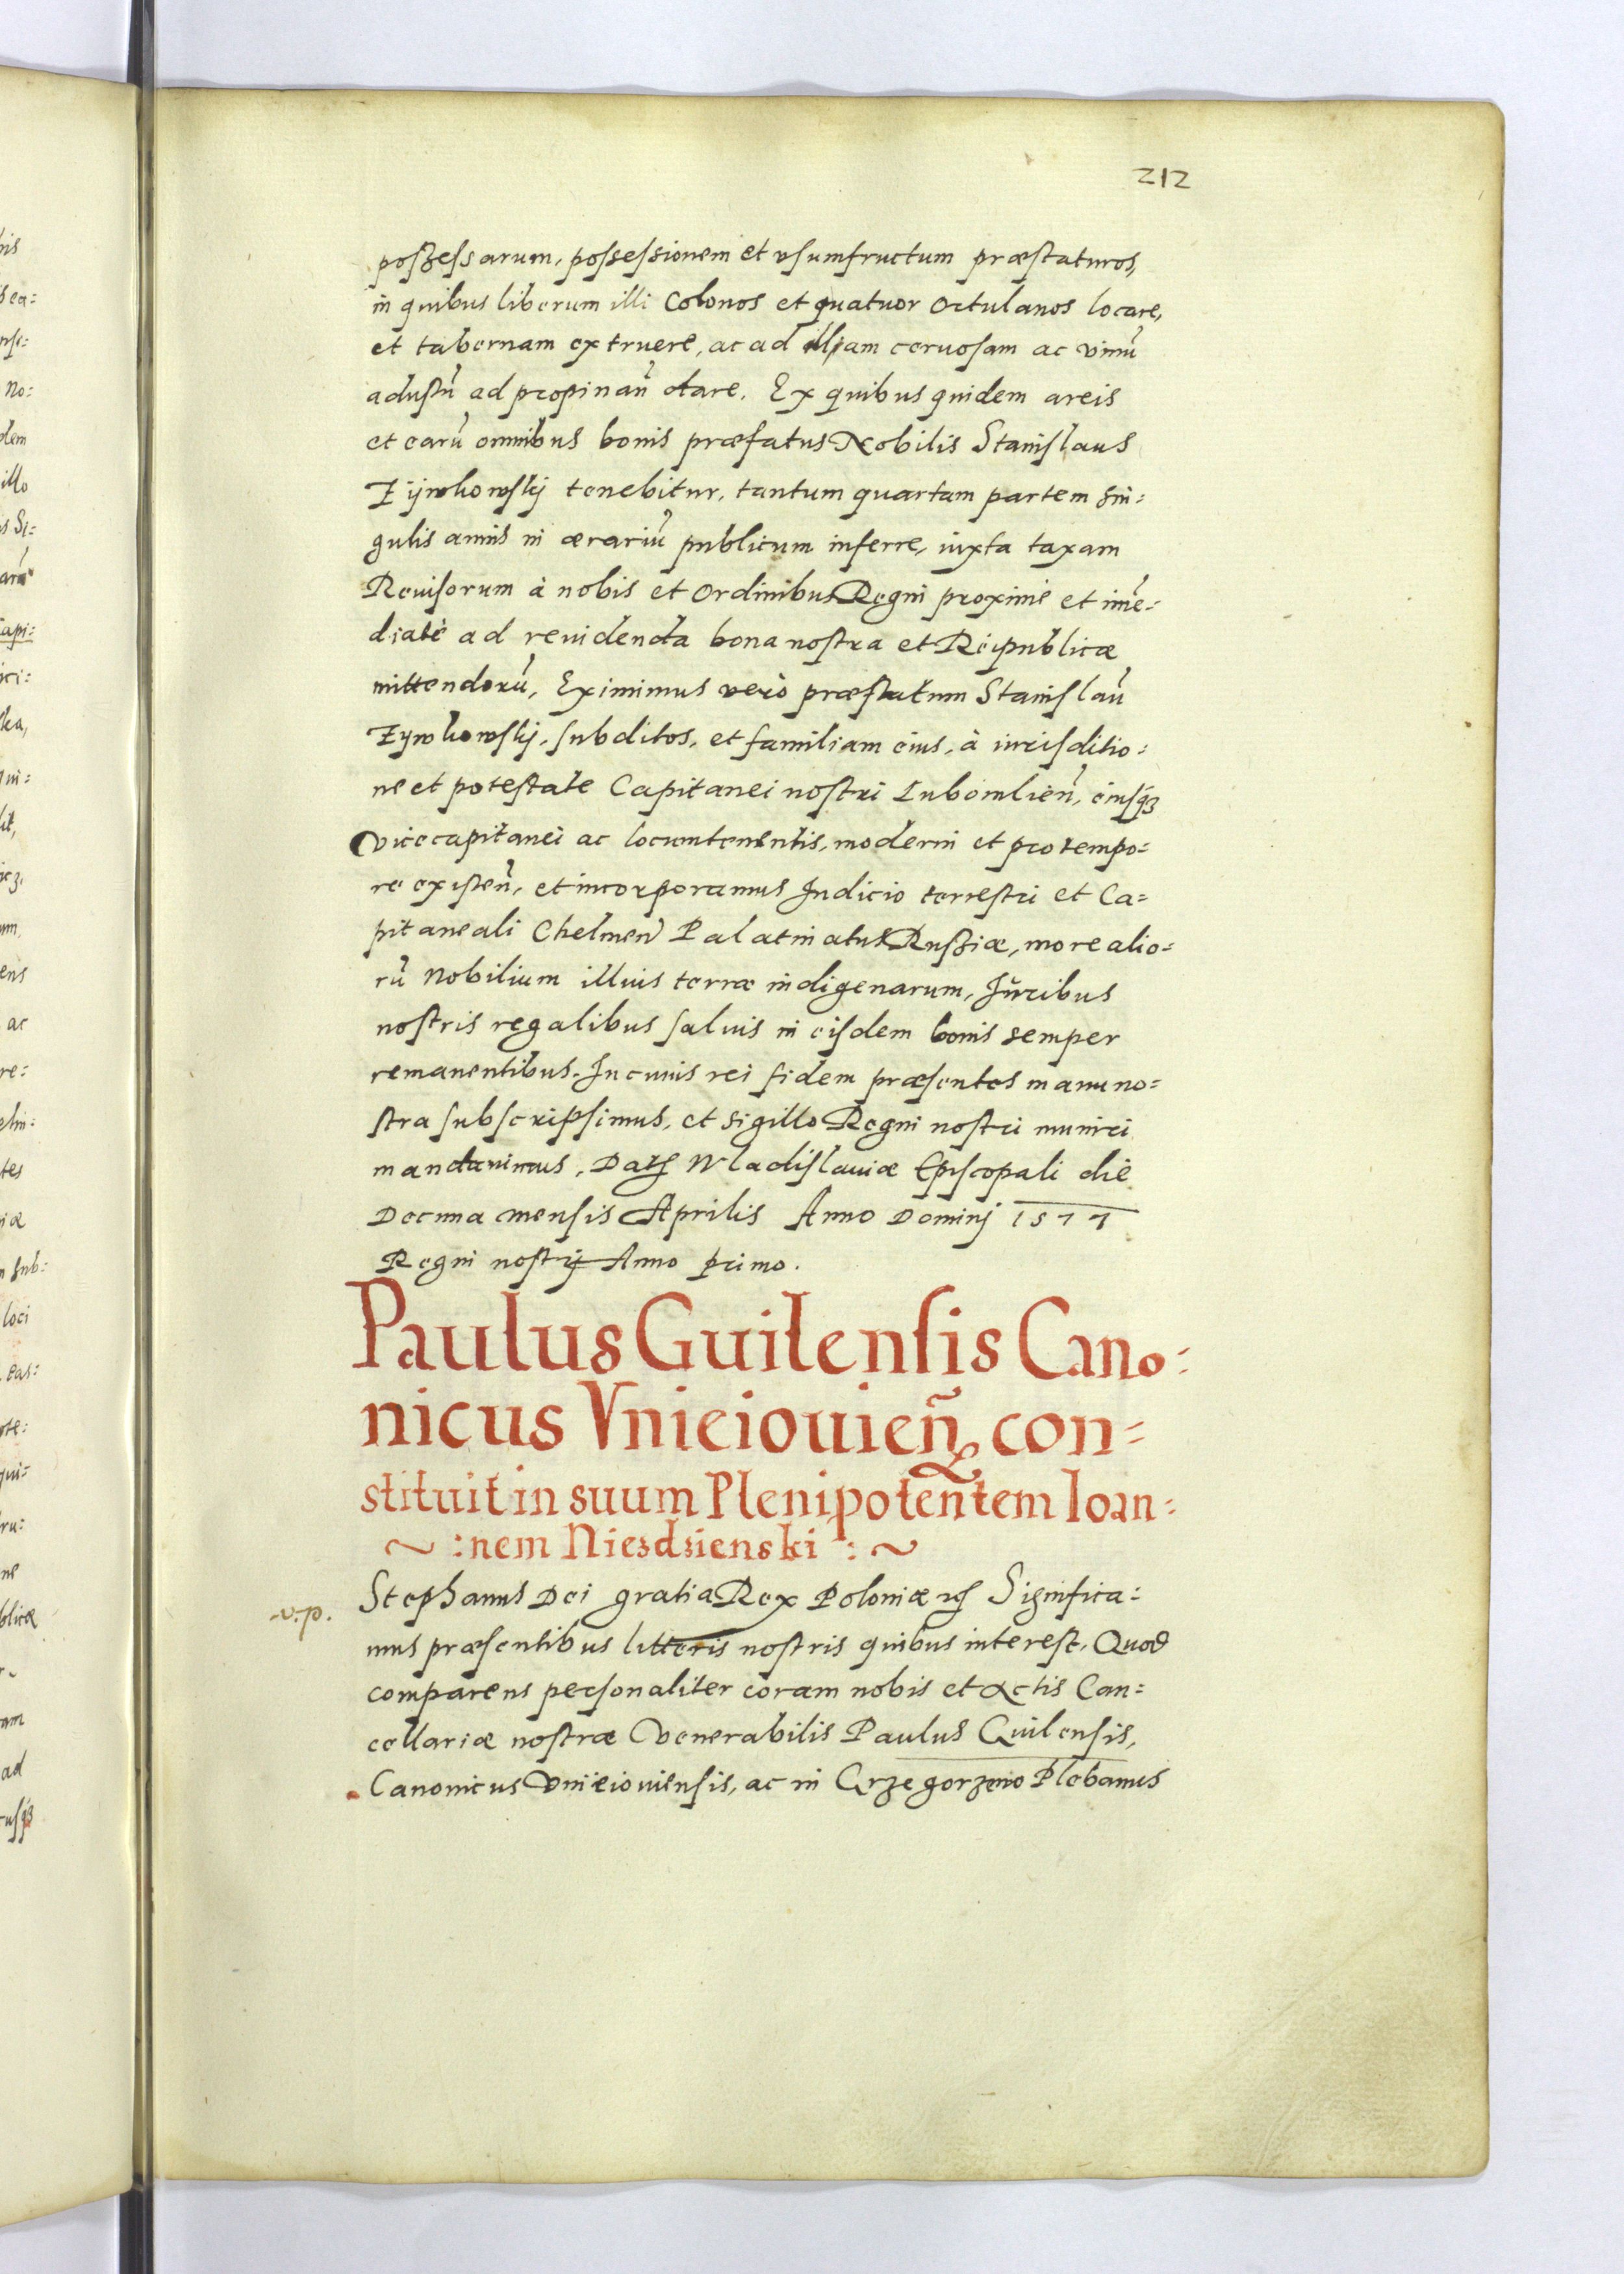 212
poſzeſsarum, poſseſsionem et vſumfructum præſtaturos,
in quibus liberum illi Colonos et quatuor ortulanos locare,
et tabernam extruere, ac ad illam ceruoſam ac vinũ
aduſtũ ad propinanũ dare. Ex quibus quidem areis
et earũ omnibus bonis præfatus Nobilis Staniſlaus
tenebitur, tantum quartam partem sin=
gulis annis in ærariũ publicum inferre, iuxta taxam
Reuiſorum à nobis et Ordinibus Regni proximè et imẽ=
diatè ad reuidenda bona noſtra et Reipublicæ
mittendorũ, Eximimus verò præfatum Staniſlaũ
ſubditos, et familiam eius, à iuriſditio=
ne et poteſtate Capitanei noſtri Lubomlien̄, eiuſq3
vicecapitanei ac locumtenentis, moderni et pro tempo=
re exiſten̄, et incorporamus Iudicio terreſtri et Ca=
pitaneali Chelmen̄ Palatinatus Ruſziæ, more alio=
rũ Nobilium illius terræ indigenarum, Iuribus
noſtris regalibus ſaluis in eiſdem bonis semper
remanentibus. In cuius rei fidem præſentes manu no=
ſtra ſubſcripſimus, et sigillo Regni noſtri muniri
mandauimus, Datꝭ Wladiſlauiæ Epiſcopali die
Decima menſis Aprilis Anno Dominj 1577
Regni noſtrj Anno primo.
Paulus Guilenſis Cano=
nicus Vnieiouien̄, con=
stituit in suum Plenipoten̄tem Ioan=
~ :nem Niesdsienski : ~
v.p.
Stephanus Dei gratia Rex Poloniæ ꝛꝭ Significa=
mus præſentibus litteris noſtris quibus intereſt, Quod
comparens perſonaliter coram nobis et Actis Can=
cellariæ noſtræ Venerabilis Paulus Guilenſis,
Canonicus Vnieiouienſis, ac in Grzegorzewo Plebanus